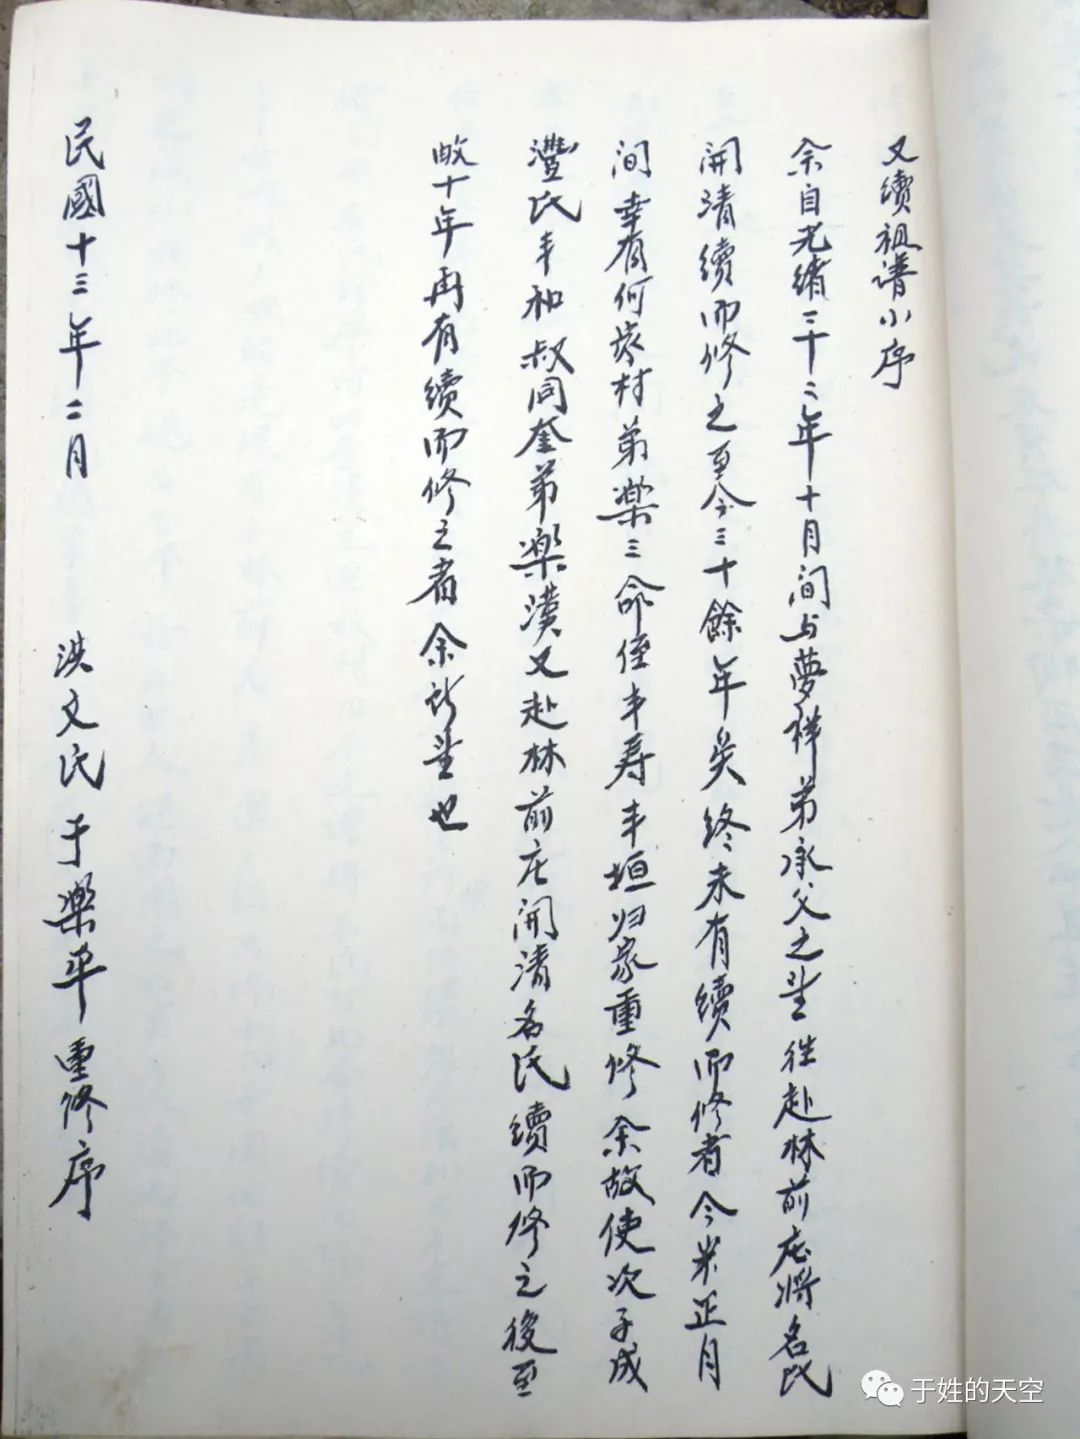 又續祖谱小序
余自光緒二十二年十月间与夢祥弟承父之望往赴林前庄將名氏
開清續而修之至今三十餘年矣终未有續而修者今岁正月
间幸有何家村弟樂三命侄丰寿丰垣归家重修余故使次子成
灃氏丰和叔同奎弟樂漢又赴林前庄開清名氏續而修之後至
数十年再有续而修之者余所望也
民國十三年二月 洪文氏于樂平重修序
于姓的天空